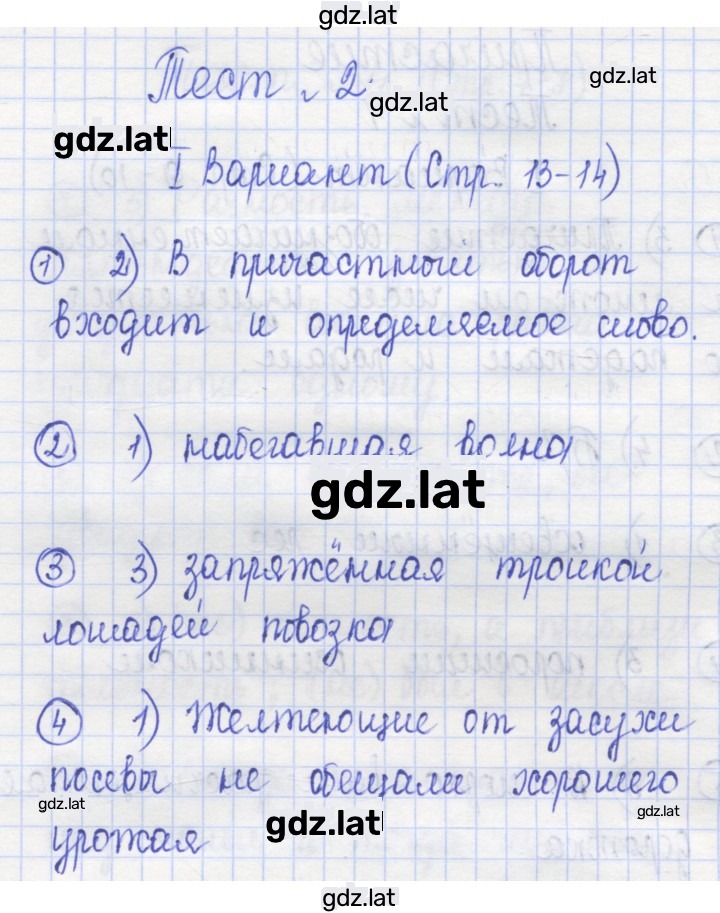 gdz.lat
Тест 2.
gdz.lat
gdz.lat
gdz.lat
I Вариант (Стр. 13-14)
1 2) В причастный оборот
входит и определяемое слово.
2 1) набегавшая волна
gdz.lat
3 3) запряжённая тройкой
лошадей повозка
4 1) Желтеющие от засухи
посевы не обещали хорошего
gdz.lat
gdz.lat
gdz.lat
урожая
gdz.lat